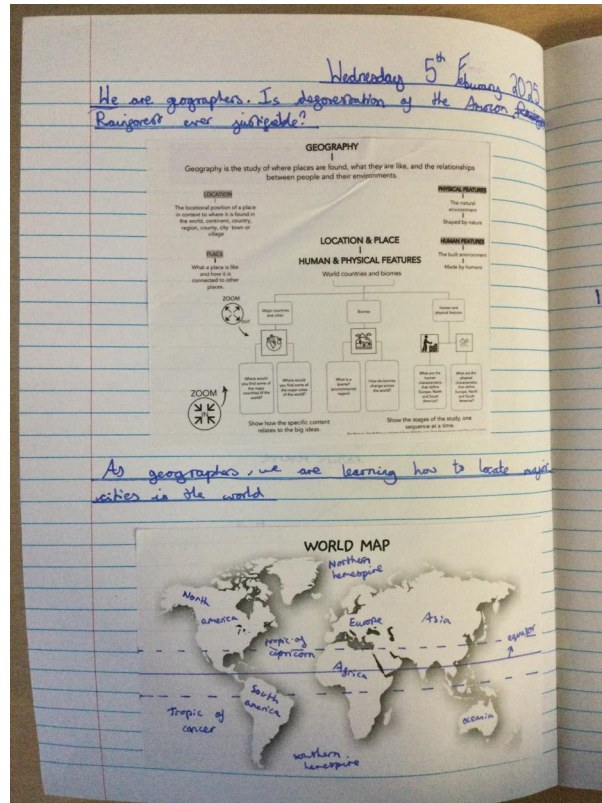 Wednesday 5th Feburary 2025
We are geographers. Is deforestation of the Amazon
Rainforest ever justifiable?
GEOGRAPHY
Geography is the study of where places are found, what they are like, and the relationships
between people and their environments.
LOCATION
The locational position of a place
in context to where it is found in
the world, continent, country,
region, county, city town or
village
PLACE
What a place is like
and how it is
connected to other
places.
PHYSICAL FEATURES
The natural
environment
Shaped by nature
HUMAN FEATURES
The built environment
Made by humans
LOCATION & PLACE
HUMAN & PHYSICAL FEATURES
World countries and biomes
ZOOM
OUT
Major countries
and cities
Biomes
Human and
physical features
Where would
you find some of
the major
countries of the
world?
Where would
you find some of
the major cities
of the world?
What is a
biome?
(environmental
region)
How do biomes
change across
the world?
What are the
human
characteristics
that define
Europe, North
and South
America?
What are the
physical
characteristics
that define
Europe, North
and South
America?
ZOOM
IN
Show how the specific content
relates to the big ideas.
Show the stages of the study, one
sequence at a time.
As geographers, we are learning how to locate major
cities in the world
WORLD MAP
Northern
hemespire
North
america
Europe
Asia
tropic of
capricorn
equator
Africa
South
america
Tropic of
cancer
oceania
southern
hemespire